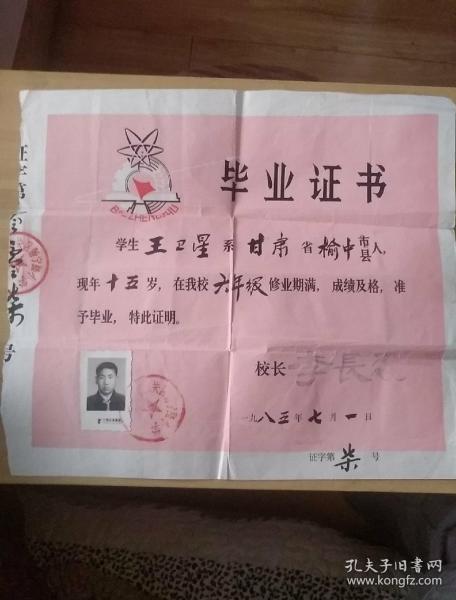 毕业证书
BIYEZHENGSHU
学生王卫星系甘肃省榆中市县人,
现年十五岁,在我校六年级修业期满,成绩及格,准
予毕业,特此证明。
校长 李長
一九八三年七月一日
证字第柒号
证字第
柒号
孔夫子旧书网
www.kongfz.com